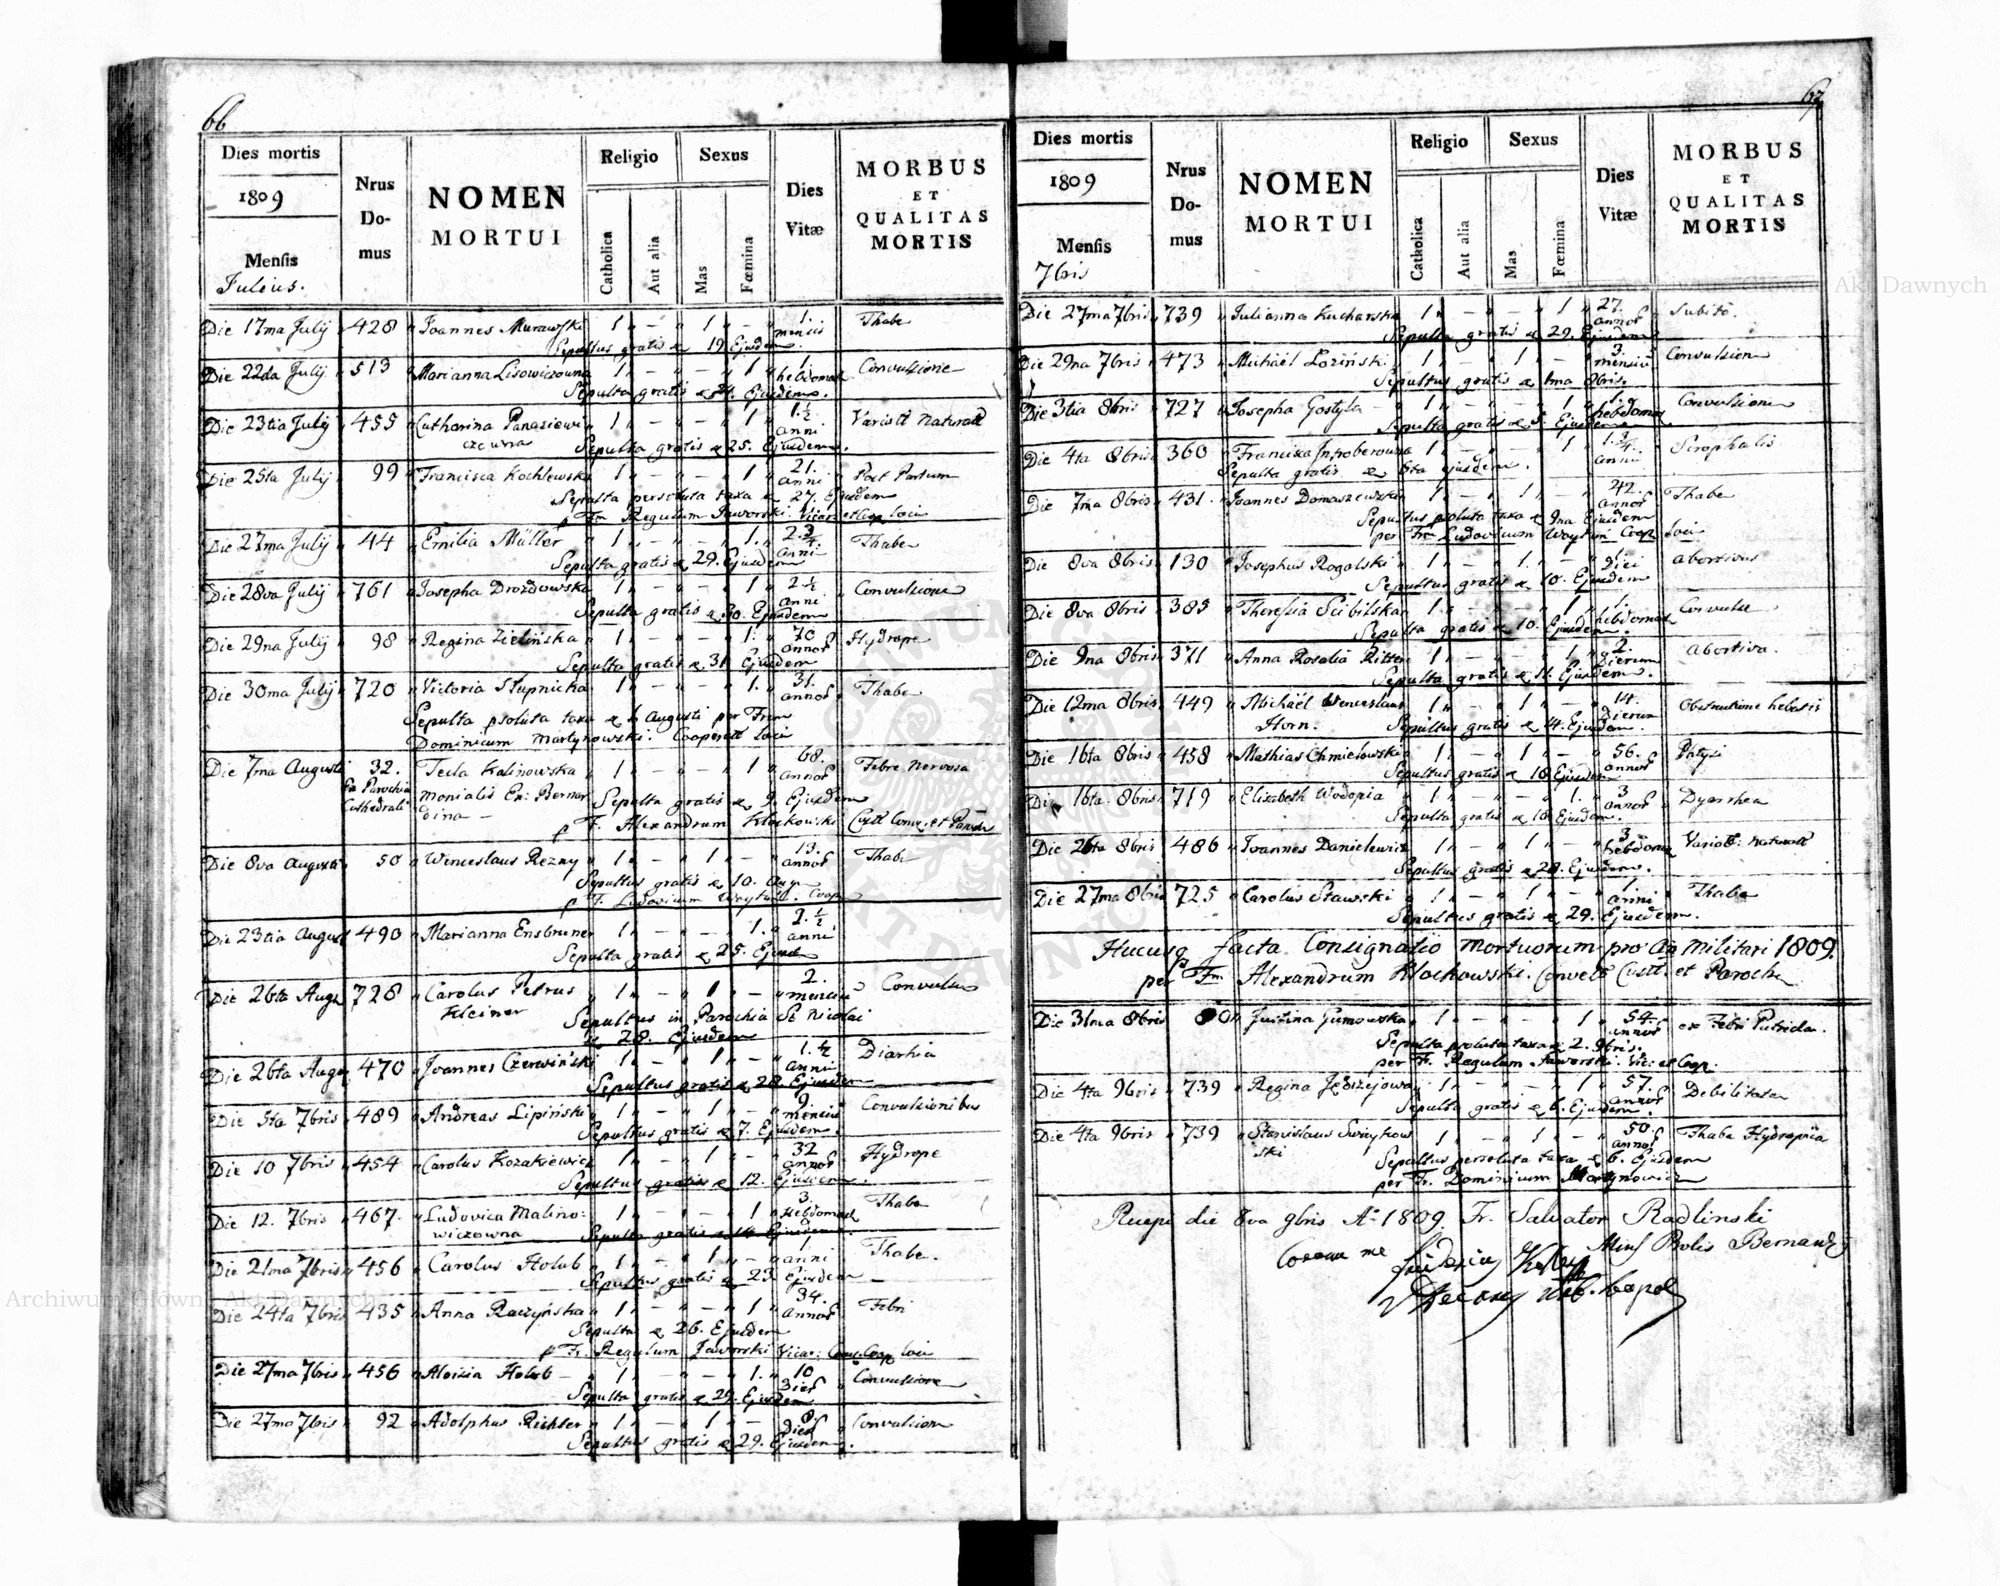 66
Dies mortis
1809
Mensis
Julius.
Nrus Do-mus
NOMEN MORTUI
Religio
Catholica
Aut alia
Sexus
Mas
Fœmina
Dies Vitæ
MORBUS ET QUALITAS MORTIS
Die 17ma July 428 Joannes Murawski 1 " – " 1 " – " 1. mensis Thabe
Sepultus gratis 19 Ejusdem.
Die 22da July 513 Marianna Lisowiczowna 1 " – " – " 1 " 1. hebdomad Convulsione
Sepulta gratis 24. Ejusdem.
Die 23tia July 455 Catharina Panasiewi 1 " – " – " 1 " 1.½ anni Variol Natural
czowna Sepulta gratis 25. Ejusdem.
Die 25ta July 99 Francisca Kochlewska 1 " – " – " 1 " 21. anni Post Partum
Sepulta persoluta taxa 27. Ejusdem
p Frm Regulum Jaworski Vicar et Coop loci
Die 27ma July 44 Emilia Müller 1 " – " – " 1. " 2.¾ anni Thabe
Sepulta gratis 29. Ejusdem
Die 28va July 761 Josepha Drozdowska 1 " – " – " 1 " 2 ½ anni Convulsione
Sepulta gratis 30. Ejusdem
Die 29na July 98 Regina Zielińska 1 " – " – " 1. " 70 annor Hydrope
Sepulta gratis 31 Ejusdem
Die 30ma July 720 Victoria Słupnicka 1 " – " – " 1. " 31. annor Thabe
Sepulta psoluta taxa 1 Augusti per Frem
Dominicum Martynowski. Cooperat loci
Die 7ma Augusti 32. Tecla Kalinowska 1 " – " – " 1 " 68. annor Febre nervosa
Ex Parochia Cathedrali Monialis Ex: Bernar Sepulta gratis 9. Ejusdem
dina – p F. Alexandrum Klockowski Custt Conv. et Paroch
Die 8va Augusti 50 Winceslaus Rezny 1 " – " 1 " – " 13. annor Thabe
Sepultus gratis 10. Aug
p F. Ludovicum Woytun. Coop
Die 23tia August 490 Marianna Ensbruner 1 " – " – " 1. " 2.½ anni
Sepulta gratis 25. Ejusd
Die 26ta Aug 728 Carolus Petrus 1 " – " 1 " – " 2. mensiu Convulsu
Kleiner Sepultus in Parochia St Nicolai
28. Ejusdem
Die 26ta Aug 470 Joannes Czerwiński 1 " – " 1 " – " 1.½ anni Diarhia
Sepultus gratis 28. Ejusdem
Die 5ta 7bris 489 Andreas Lipiński 1 " – " 1 " – " 9. mensiu Convulsionibus
Sepultus gratis 7. Ejusdem.
Die 10 7bris 454 Carolus Kozakiewicz 1 " – " 1 " – " 32 annor Hydrope
Sepultus gratis 12. Ejusdem.
Die 12. 7bris 467. Ludovica Malino: 1 " – " – " 1 " 3. Hebdomad Thabe
wiczowna Sepulta gratis 14 Ejusdem.
Die 21ma 7bris 456 Carolus Holub 1 " – " 1 " – " 1 anni Thabe.
Sepultus gratis 23 Ejusdem
Die 24ta 7bris 435 Anna Raczyńska 1 " – " – " 1 " 34. annor Febri
Sepulta 26. Ejusdem
p Fr. Regulum Jaworski Vicar: Coop loci
Die 27ma 7bris 456 Aloisia Holub 1 " – " – " 1. " 10 dier Convulsione
Sepulta gratis 29. Ejusdem
Die 27ma 7bris 92 Adolphus Richter 1 " – " 1 " – " dier Convulsion
Sepultus gratis 29. Ejusdem.
67
Dies mortis
1809
Mensis
7bris
Nrus Do-mus
NOMEN MORTUI
Religio
Catholica
Aut alia
Sexus
Mas
Fœmina
Dies Vitæ
MORBUS ET QUALITAS MORTIS
Die 27ma 7bris 739 Julianna Kucharska 1 " – " – " 1 " 27. annor Subito.
Sepulta gratis 29. Ejusdem
Die 29na 7bris 473 Michaël Łoziński 1 " – " 1 " – " 3. mensiu Convulsion
Sepultus gratis 1ma 8bris.
Die 3tia 8bris 727 Josepha Gostyla 1 " – " – " 1 " 1. hebdomad Convulsione
Sepulta gratis 5. Ejusdem
Die 4ta 8bris 360 Francisca Infroberowna 1 " – " – " 1 " 1.¾ anni Scrophulis
Sepulta gratis 6ta ejusdem.
Die 7ma 8bris 431. Joannes Domaszewski 1 " – " 1 " – " 42. annor Thabe
Sepultus psoluta taxa 9na Ejusdem
per Fr Ludovicum Woytun Coop loci
Die 8va 8bris 130 Josephus Rogalski 1 " – " 1. " – " 1. diei abortivus
Sepultus gratis 10. Ejusdem
Die 8va 8bris 385 Theressia Scibilska 1 " – " – " 1 " 1. hebdomad Convulsu
Sepulta gratis 10. Ejusdem.
Die 9na 8bris 371 Anna Rosalia Ritter 1 " – " – " 1 " 2. Dierum abortiva.
Sepulta gratis 11. Ejusdem.
Die 12ma 8bris 449 Michaël Wenceslaus 1 " – " 1 " – " 14. Dierum Obstructione
Horn. Sepultus gratis 14. Ejusdem.
Die 16ta 8bris 458 Mathias Chmielowski 1 " – " 1 " – " 56. annor
Sepultus gratis 18 Ejusdem
Die 16ta 8bris 719 Elisabeth Wodopia 1 " – " – " 1. " 3 annor Dyarrhea
Sepulta gratis 18 Ejusdem.
Die 26ta 8bris 486 Joannes Danielewicz 1 " – " 1 " – " 3. hebdomad Variol: natural
Sepultus gratis 28. Ejusdem.
Die 27ma 8bris 725 Carolus Stawski 1 " – " 1 " – " 1. anni Thabe
Sepultus gratis 29. Ejusdem.
Hucusq facta Consignatio Mortuorum pro Militari 1809.
per Frm Alexandrum Klockowski. Convt Custt. et Paroch
Die 31ma 8bris 80 Justina Gumowska 1 " – " – " 1 " 54. annor ex Febri Putrida.
Sepulta psoluta taxa 2. 9bris.
per Fr. Regulum Jaworski. Vic: et Coop
Die 4ta 9bris 739 Regina Jędrzejowa 1 " – " – " 1 " 57. annor Debilitate
Sepulta gratis 6. Ejusdem.
Die 4ta 9bris 739 Stanislaus Swirykow 1 " – " 1 " – " 50. annor Thabe Hydropica
ski Sepultus persoluta taxa 6. Ejusdem
per Fr. Dominicum Martynowicz
Recepi die 8va 9bris A 1809. Fr. Salvator Radlinski
Coram me Minr Prolis Bernard
Archiwum Główne Akt Dawnych
Archiwum Główne Akt Dawnych
ARCHIWUM GŁÓWNE AKT DAWNYCH